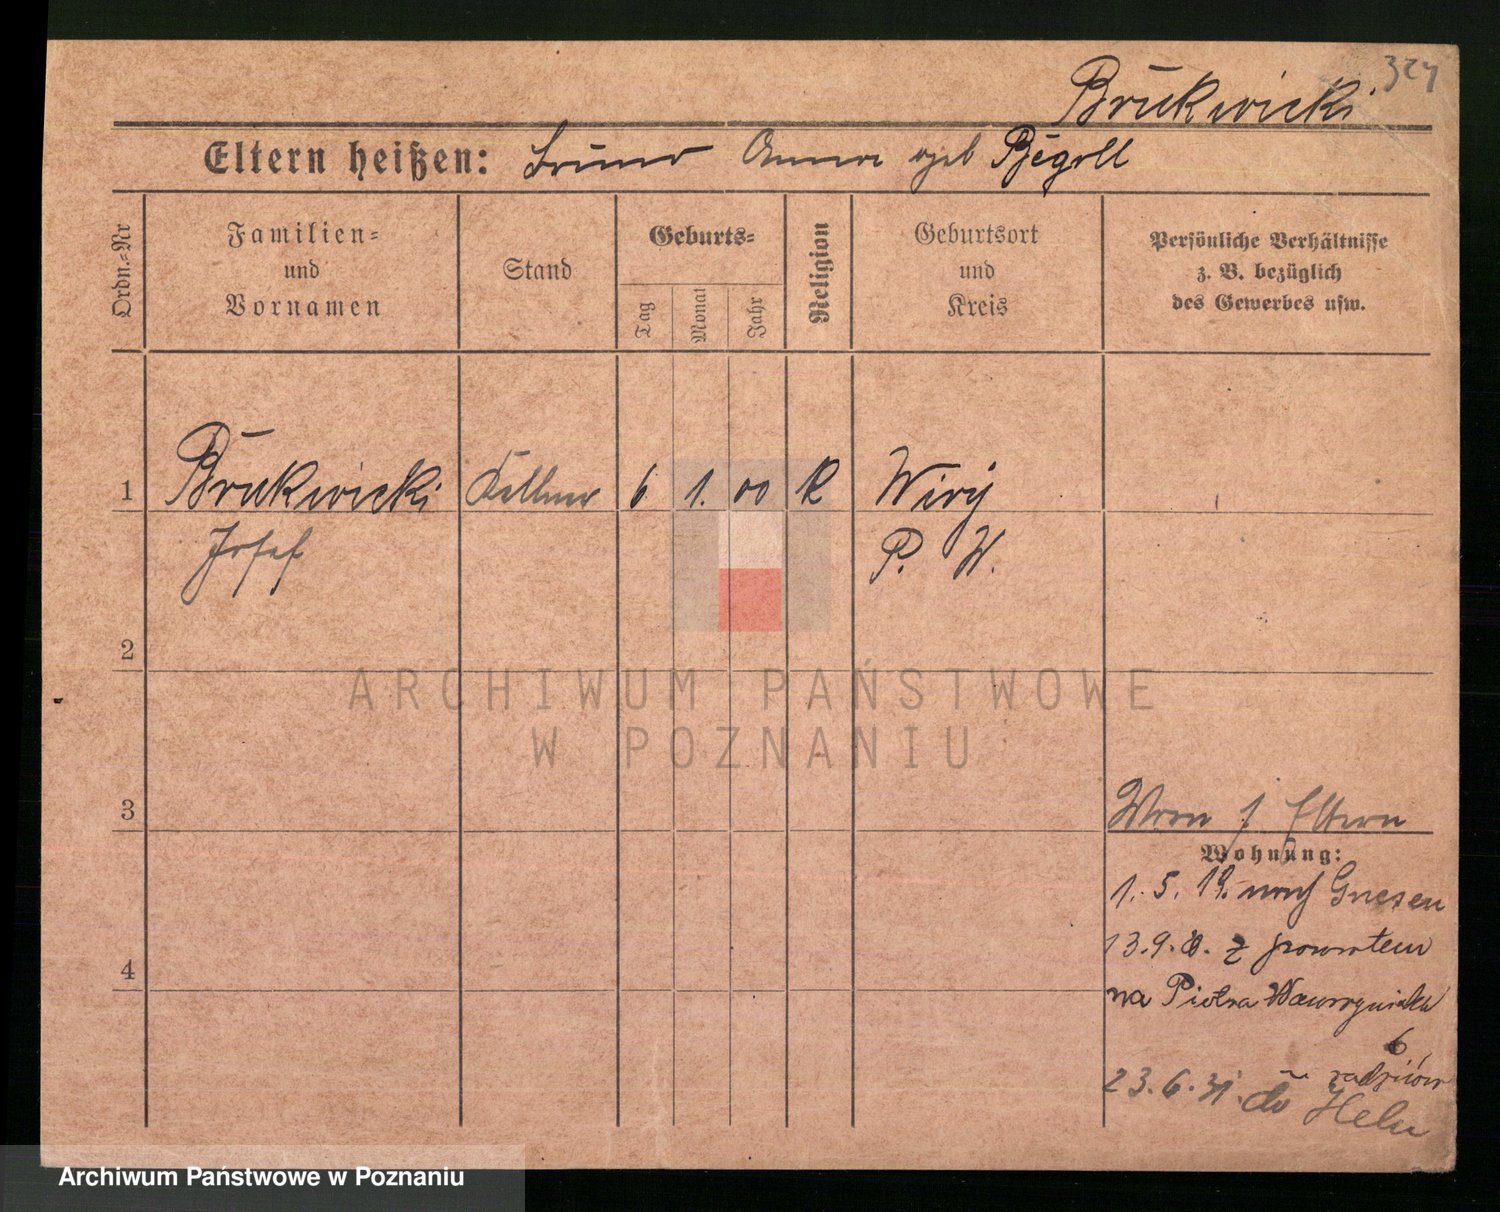 324
Brukwicki
Eltern heißen: Bruno Anna geb
Ordn.-Nr
Familien-
und
Vornamen
Stand
Geburts-
Tag
Monat
Jahr
Religion
Geburtsort
und
Kreis
Persönliche Verhältnisse
z. B. bezüglich
des Gewerbes usw.
1
Brukwicki Kellner 6 1. 00 K Wiry
Josef P. W.
2
ARCHIWUM PAŃSTWOWE
W POZNANIU
3
Eltern
Wohnung:
1. 5. 19. nach Gnesen
13. 9. z powrotem
na Piotra Wawrzyniaka
6
u rodziców
23. 6. 31. do Helu
4
Archiwum Państwowe w Poznaniu